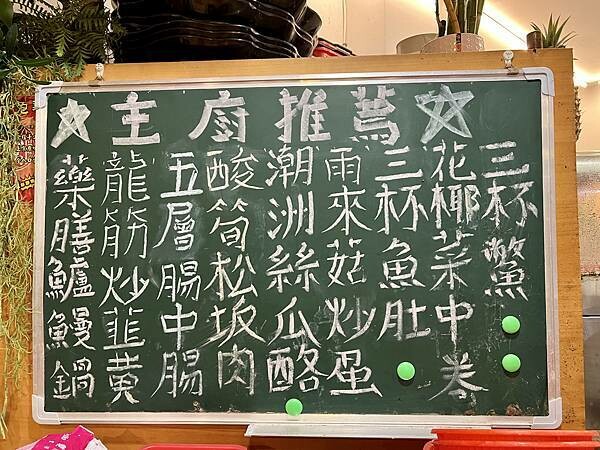 ☆主廚推薦☆
三杯鱉
花椰菜中卷
三杯魚肚
雨來菇炒蛋
潮洲絲瓜酪
酸筍松坂肉
五層腸中腸
龍筋炒韮黃
藥膳鱸鰻鍋